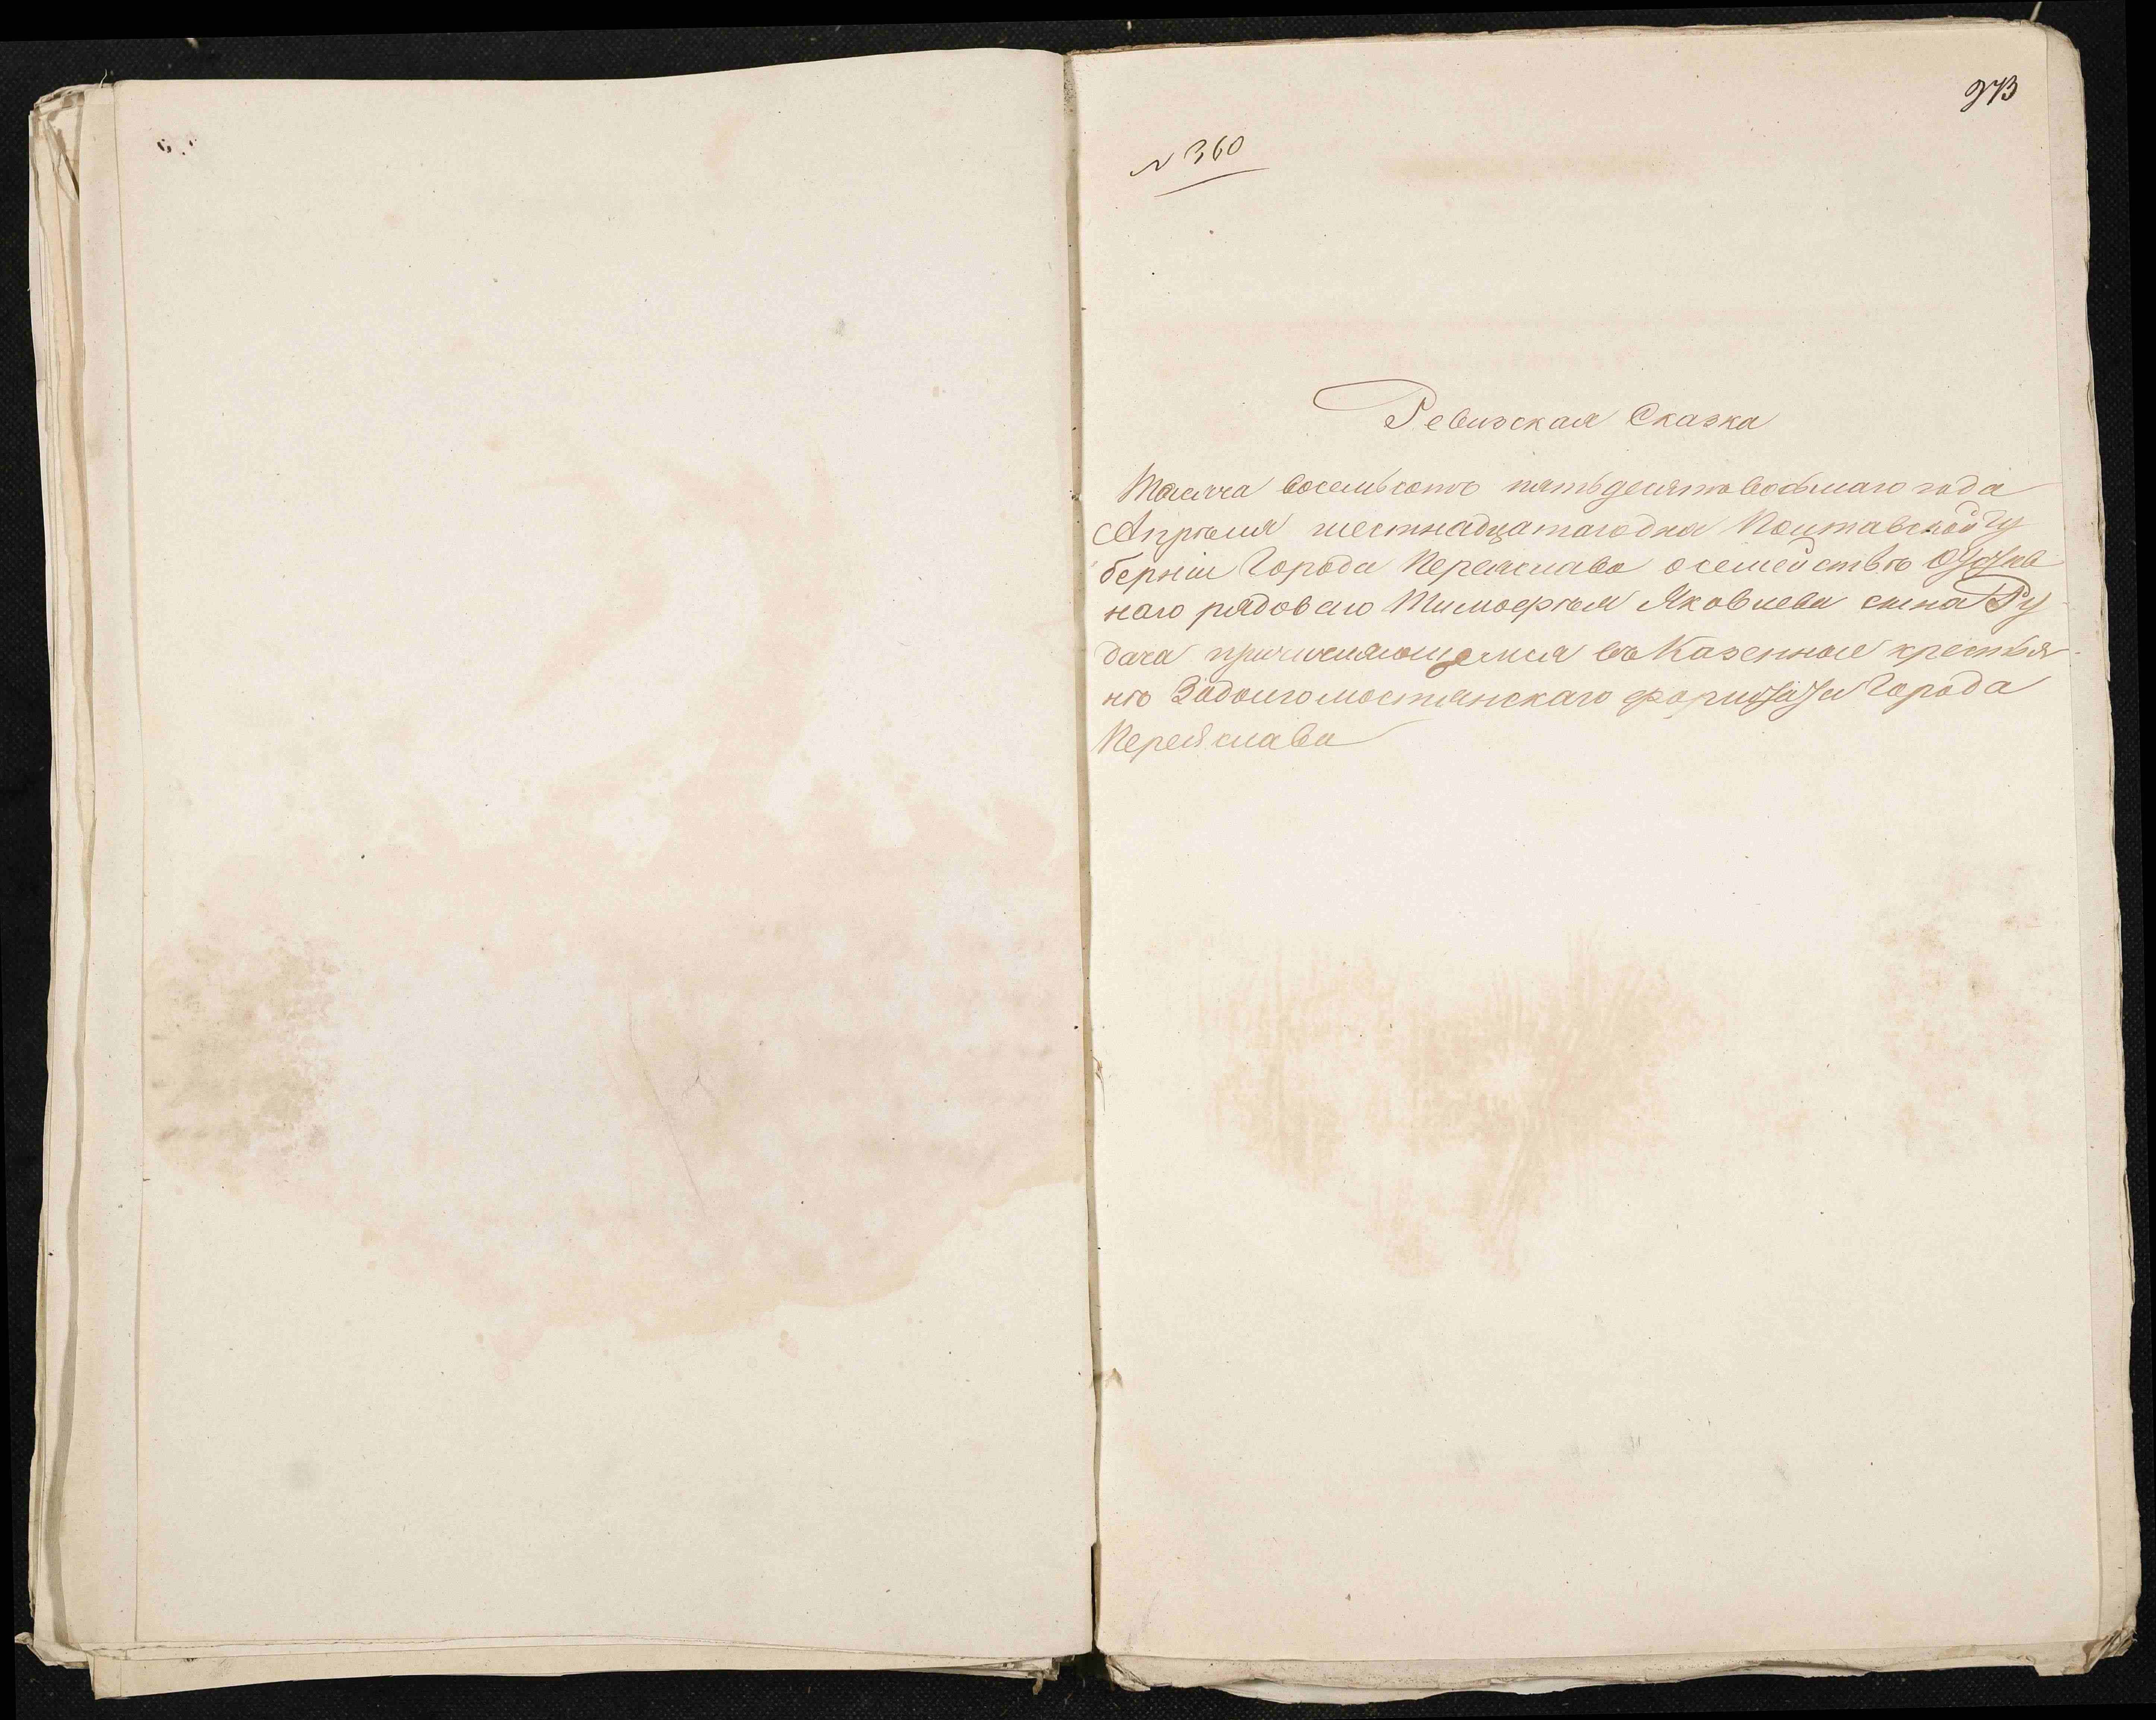 973
N 360
Ревизская Сказка
Тысяча восемьсотъ пятьдесятъ восьмаго года
Апрѣля шестнадцатаго дня Полтавской Гу
берніи Города Переяслава о семействѣ
наго рядоваго Тимофѣя Яковлева сына Ру
дача причисляющемся въ Казенные крестья-
нѣ Задолгомостянскаго форштата Города
Переяслава